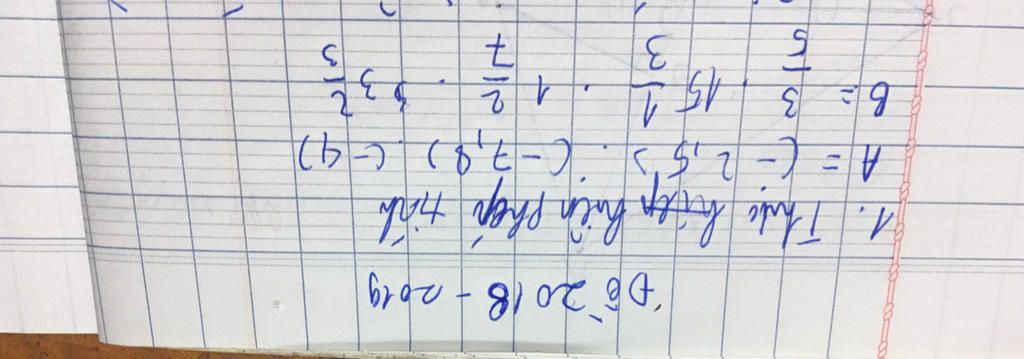 Đề 2018 - 2019
1. Thực hiện phép tính
A = (-2,5) . (-7,8) . (-4)
B = 3/5 . 15 1/3 . 1 2/7 . 3 2/3